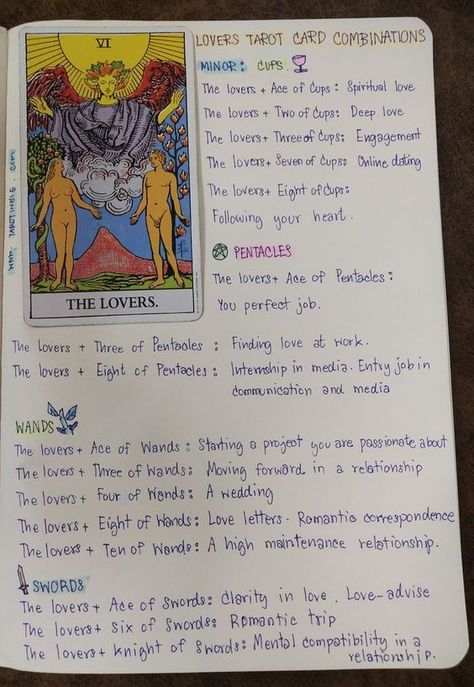 LOVERS TAROT CARD COMBINATIONS
VI
THE LOVERS.
MINOR: CUPS.
The lovers + Ace of Cups: Spiritual love
The lovers + Two of Cups: Deep love
The lovers + Three of Cups: Engagement
The lovers + Seven of Cups: Online dating
The lovers + Eight of Cups:
Following your heart.
PENTACLES
The lovers + Ace of Pentacles:
You perfect job.
The lovers + Three of Pentacles : Finding love at work.
The lovers + Eight of Pentacles : Internship in media. Entry job in
communication and media
WANDS
The lovers + Ace of Wands : Starting a project you are passionate about
The lovers + Three of Wands: Moving forward in a relationship
The lovers + Four of Wands: A wedding
The lovers + Eight of Wands: Love letters. Romantic correspondence
The lovers + Ten of Wands: A high maintenance relationship.
SWORDS
The lovers + Ace of Swords: Clarity in love. Love-advise
The lovers + Six of Swords: Romantic trip
The lovers + Knight of Swords: Mental compatibility in a
relationship.